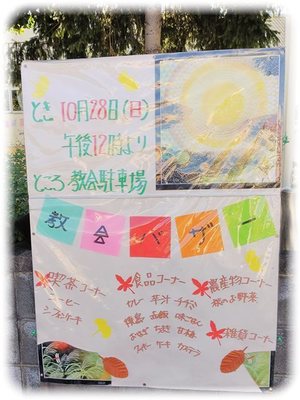 とき 10月28日(日)
午後12時より
ところ 教会駐車場
教会バザー
喫茶コーナー
コーヒー
シフォンケーキ
食品コーナー
カレー 羊汁 チヂミ
焼鳥 赤飯
おはぎ ちまき 甘酒
クッキー ケーキ カステラ
農産物コーナー
秋のお野菜
雑貨コーナー